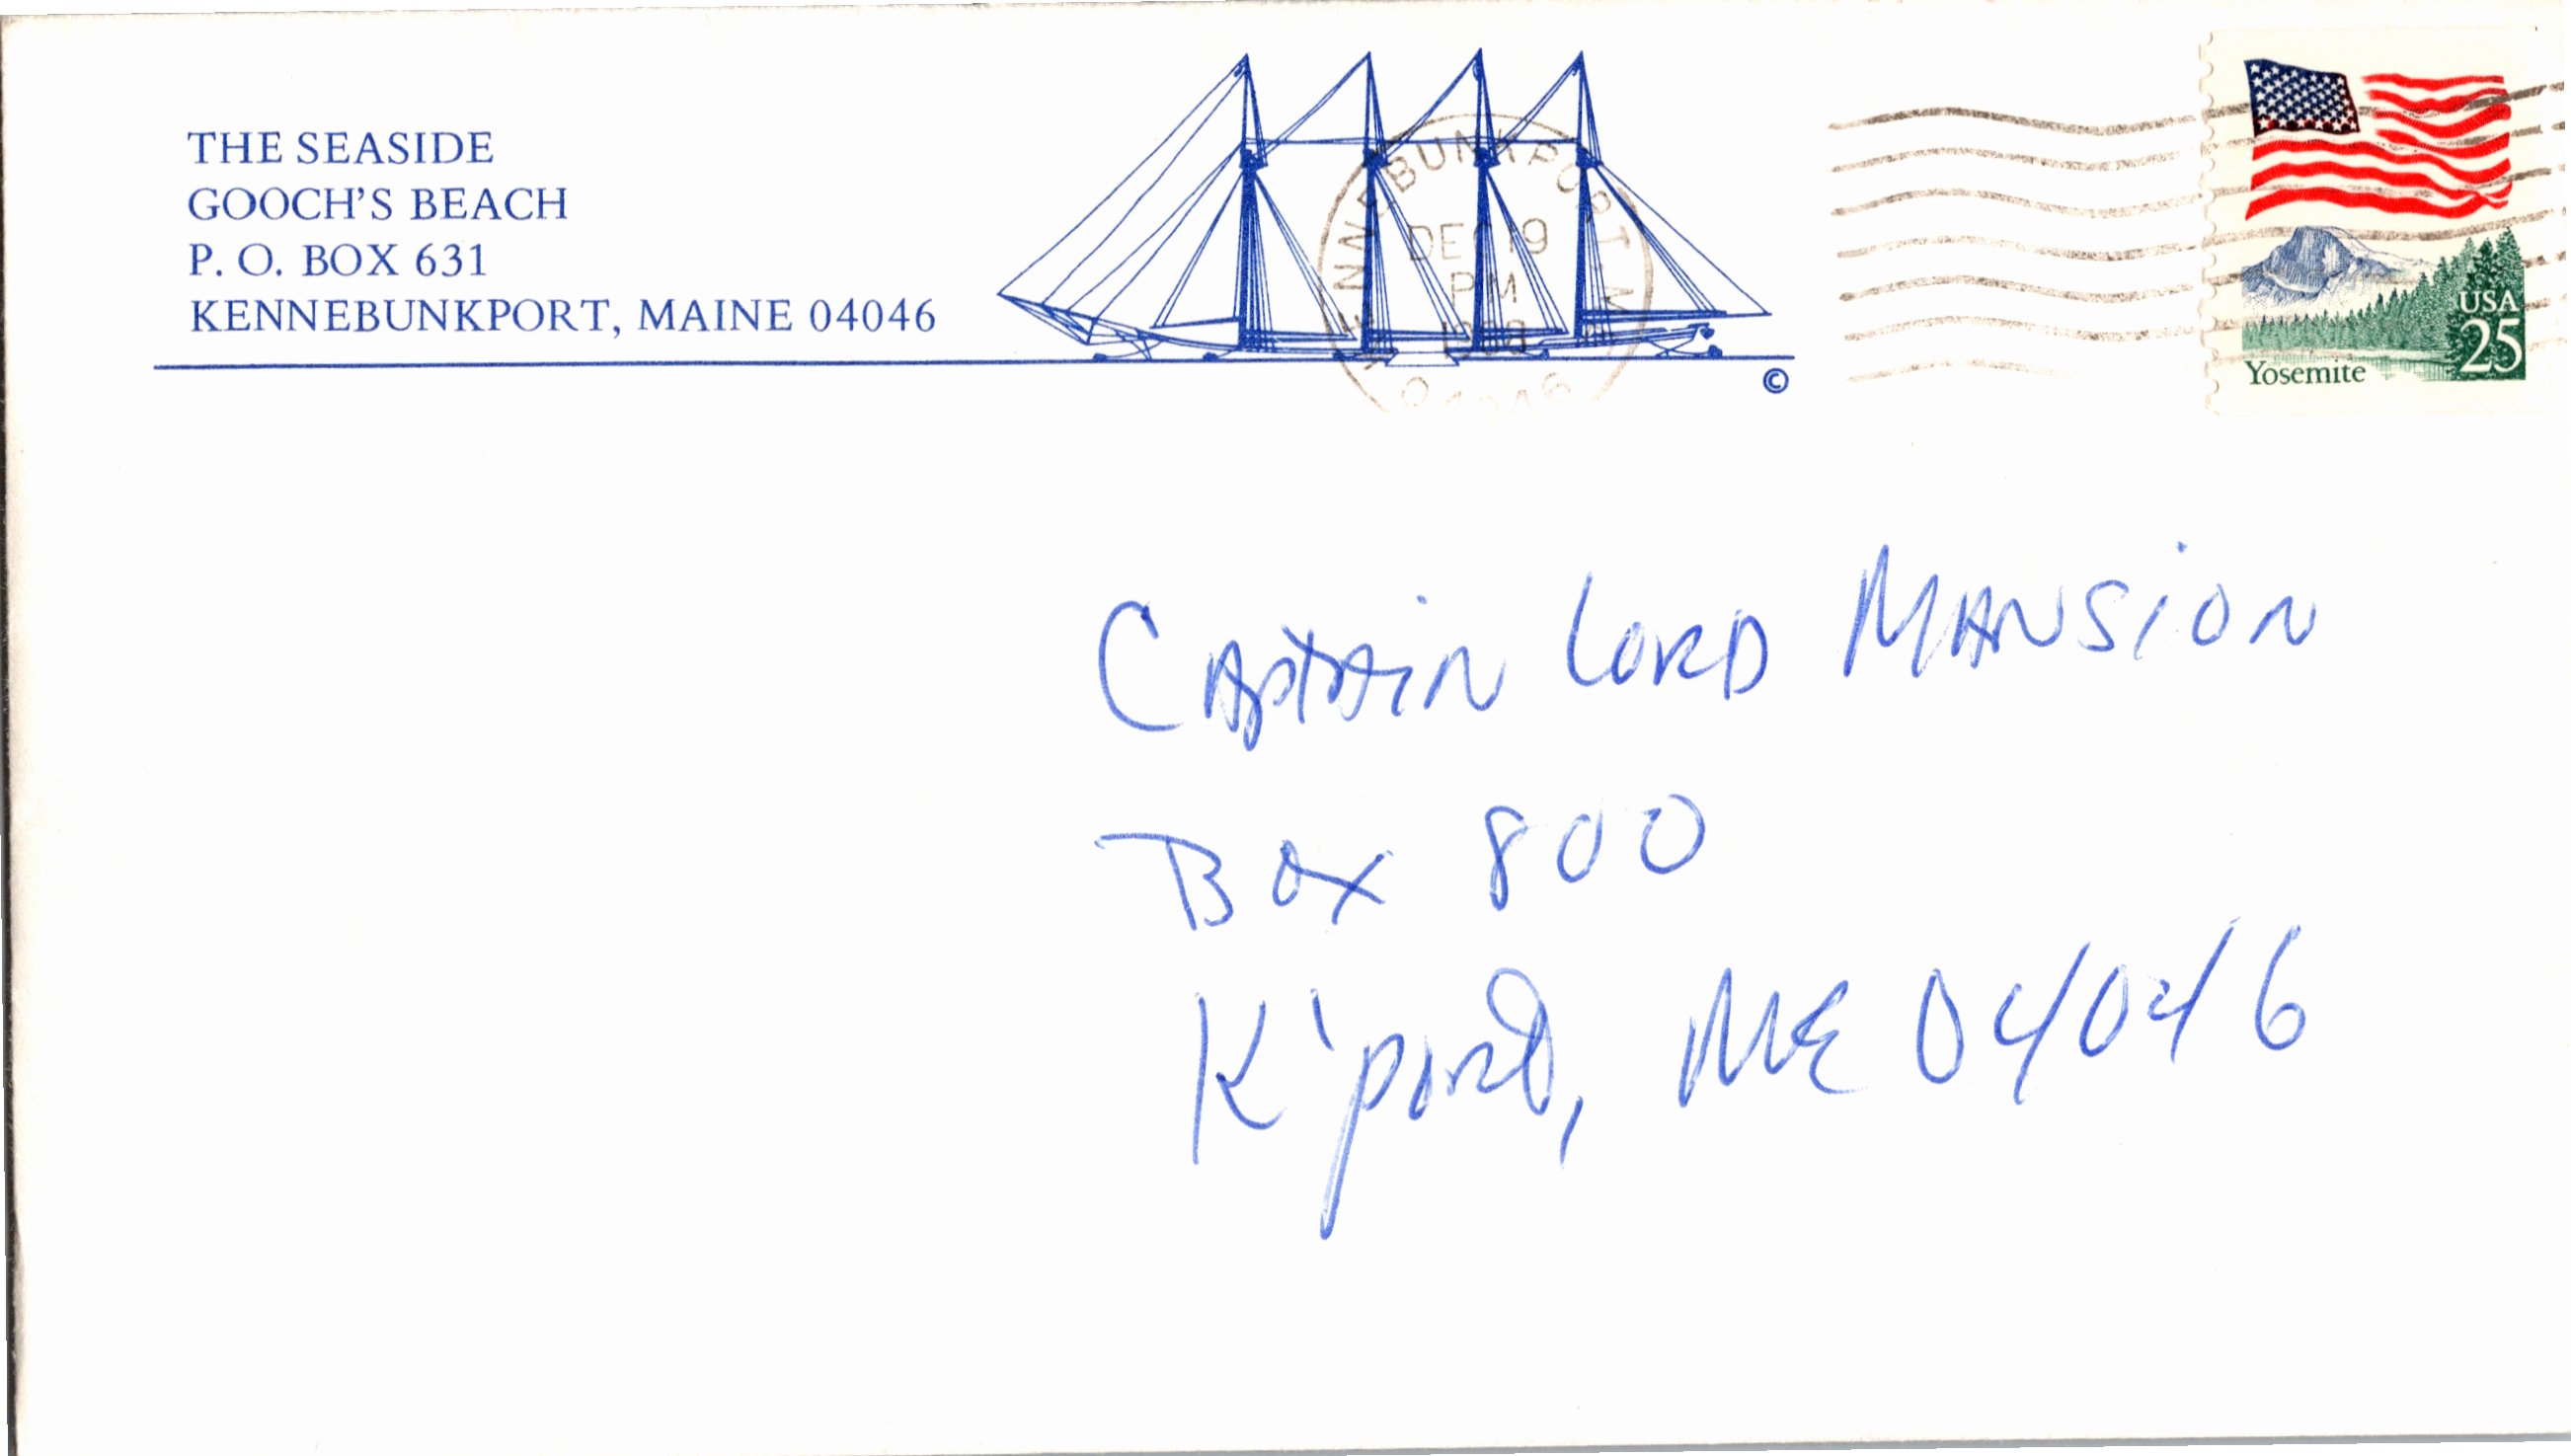 THE SEASIDE
GOOCH'S BEACH
P. O. BOX 631
KENNEBUNKPORT, MAINE 04046
©
DEC 19
PM
USA
25
Yosemite
CAptAiN LORD MANSiON
Box 800
K'port, ME 04046